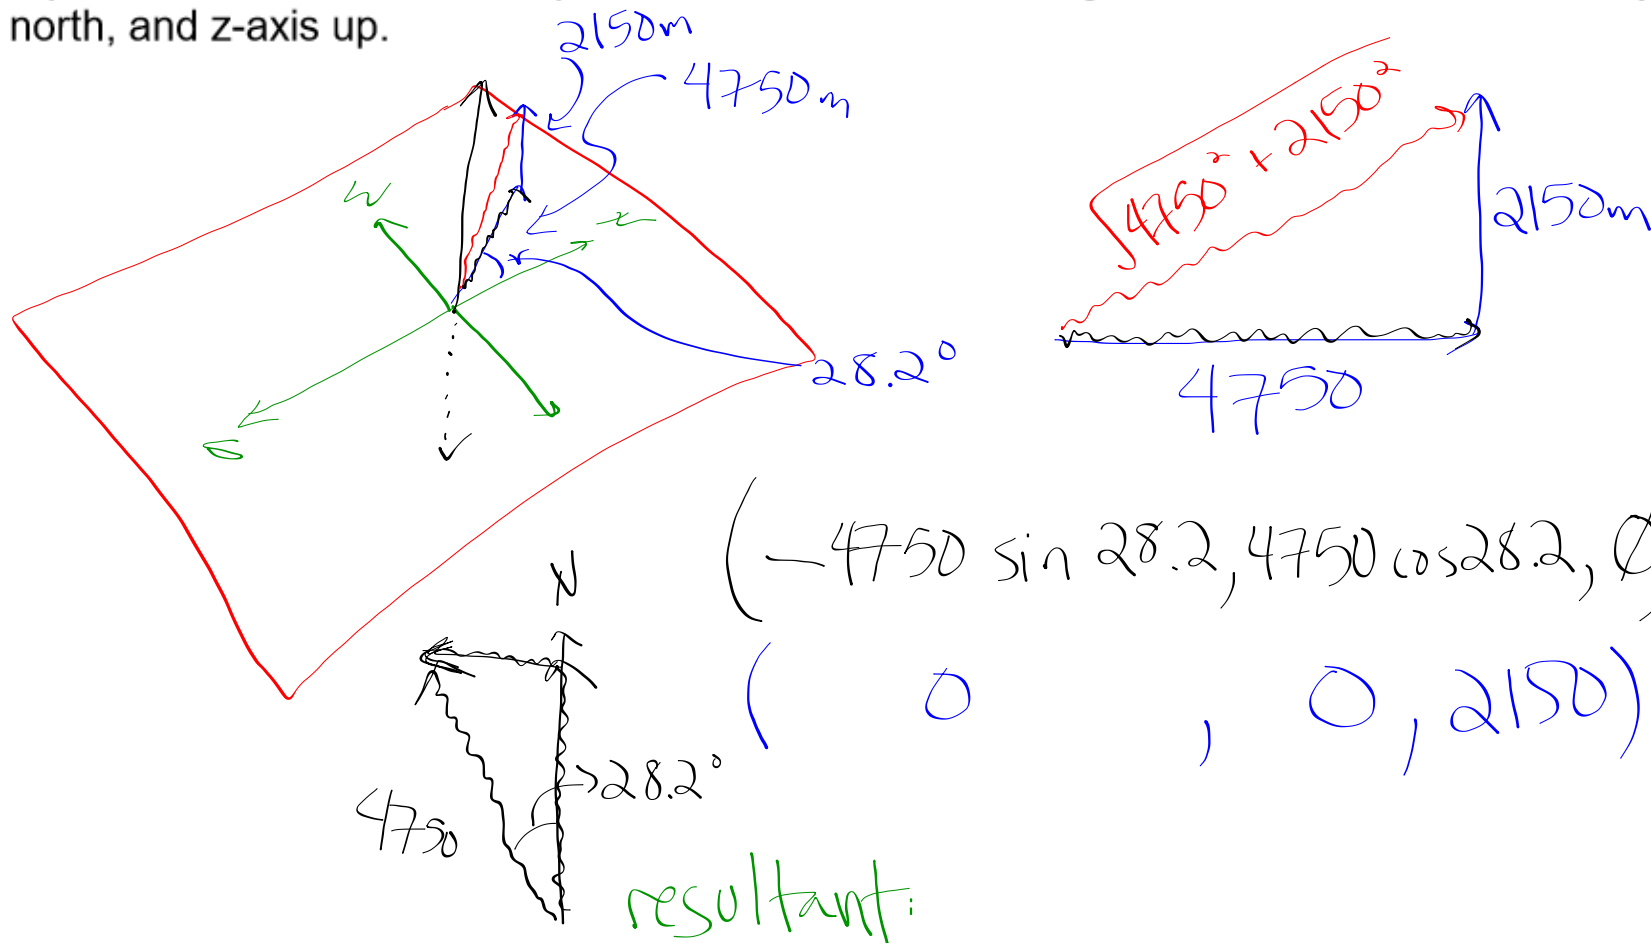 north, and z-axis up.
2150m
4750m
W
N
S
28.2°
√4750² + 2150²
2150m
4750
(-4750 sin 28.2, 4750 cos 28.2, 0
( 0 , 0, 2150)
N
28.2°
4750
resultant: